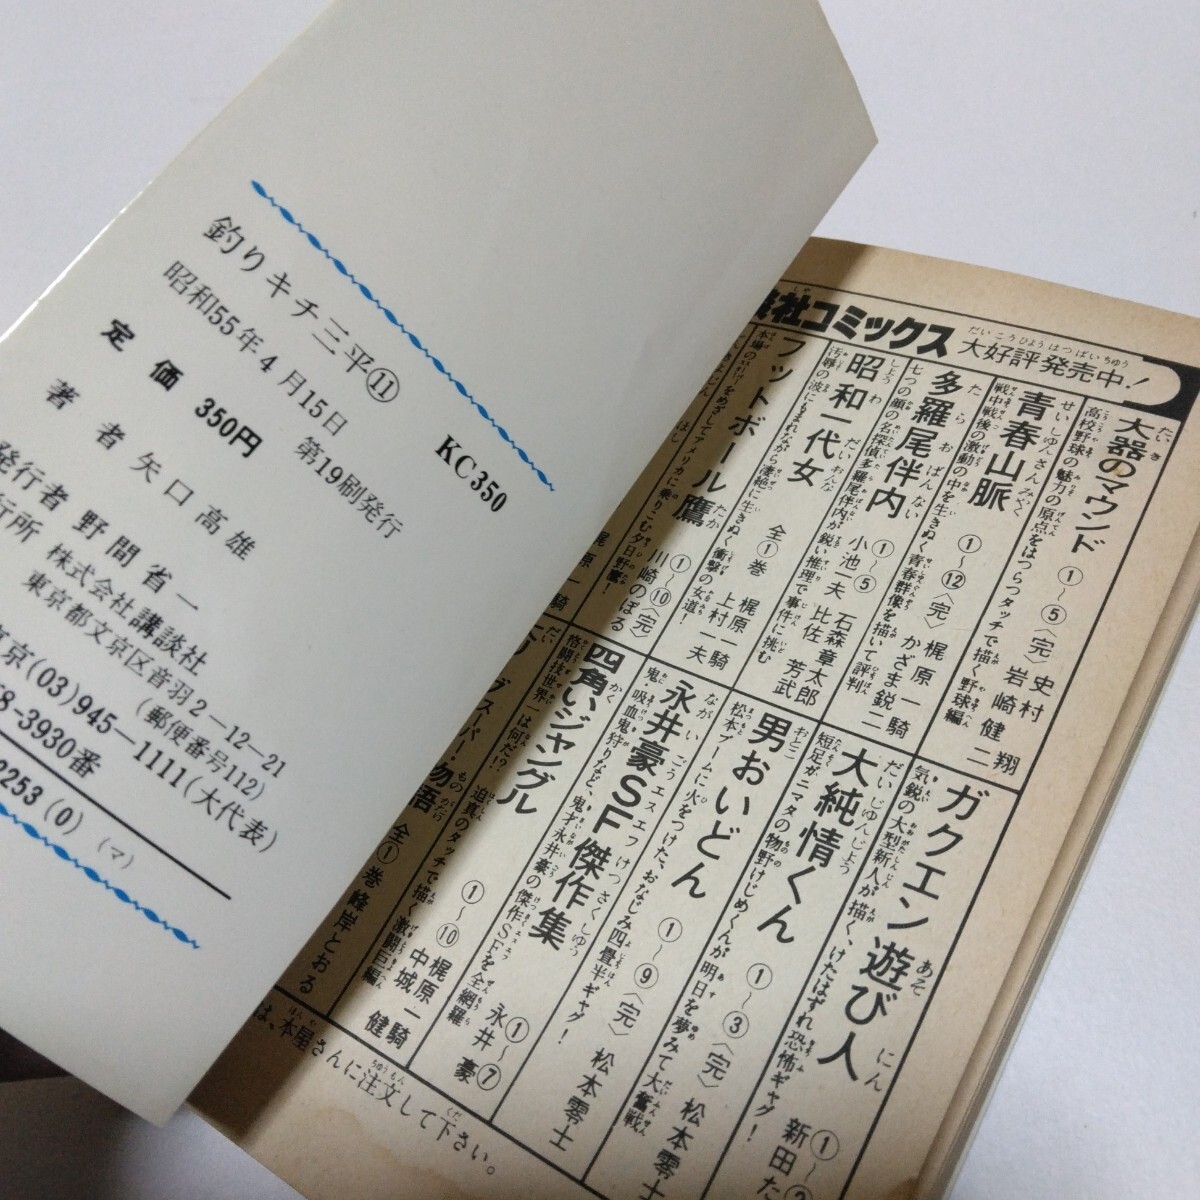 釣りキチ三平⑪
KC350
昭和55年4月15日 第19刷発行
定価 350円
著者 矢口高雄
発行者 野間省一
行所 株式会社講談社
東京都文京区音羽2-12-21
(郵便番号112)
京(03)945-1111(大代表)
8-3930番
2253(0)(マ)
社コミックス
大好評発売中!
だいこうひょうはつばいちゅう
大器のマウンド ①〜⑤〈完〉 史村翔 岩崎健二
高校野球の魅力の原点をはつらつタッチで描く野球編
青春山脈 ①〜⑫〈完〉 梶原一騎 かざま鋭二
戦中戦後の激動の中を生きぬく青春群像を描いて評判
多羅尾伴内 ①〜⑤ 小池一夫 石森章太郎
七つの顔の名探偵多羅尾伴内が鋭い推理で事件に挑む 比佐芳武
昭和一代女 全①巻 梶原一騎 上村一夫
汚辱の波にもまれながら凄絶に生きぬく衝撃の女道!
フットボール鷹 ①〜⑩〈完〉 川崎のぼる
本場の をめざしてアメリカに乗りこむ夕日野鷹!
梶原一騎
ガクエン遊び人 ①〜 新田た
気鋭の大型新人が描く、けたはずれ恐怖ギャグ!
大純情くん ①〜③〈完〉 松本零士
短足ガニマタの物野けじめくんが明日を夢みて大奮戦
男おいどん ①〜⑨〈完〉 松本零士
松本ブームに火をつけた、おなじみ四畳半ギャグ!
永井豪SF傑作集 ①〜⑦ 永井豪
鬼・吸血鬼狩りなど、鬼才永井豪の傑作SFを全網羅
四角いジャングル ①〜⑩ 梶原一騎 中城健
格闘技世界一は何だ!? 迫真のタッチで描く激闘巨編
ブスーパー物語 全①巻 峰岸とおる
は、本屋さんに注文して下さい。